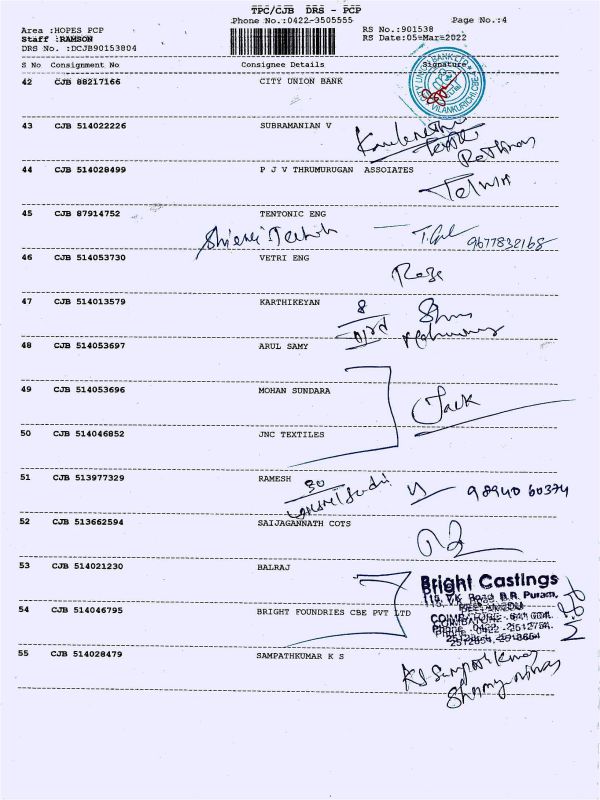 TPC/CJB DRS - PCP
Phone No.:0422-3505555
Page No.:4
Area :HOPES PCP
RS No.:901538
Staff :RAMSON
RS Date:05-Mar-2022
DRS No. :DCJB90153804
S No Consignment No Consignee Details Signature
42 CJB 88217166 CITY UNION BANK
43 CJB 514022226 SUBRAMANIAN V
44 CJB 514028499 P J V THRUMURUGAN ASSOIATES
45 CJB 87914752 TENTONIC ENG
9677832168
46 CJB 514053730 VETRI ENG
47 CJB 514013579 KARTHIKEYAN
8
48 CJB 514053697 ARUL SAMY
49 CJB 514053696 MOHAN SUNDARA
Jack
50 CJB 514046852 JNC TEXTILES
51 CJB 513977329 RAMESH
30
98940 60374
52 CJB 513662594 SAIJAGANNATH COTS
53 CJB 514021230 BALRAJ
Bright Castings
115, V.K. Road, B.R. Puram,
54 CJB 514046795 BRIGHT FOUNDRIES CBE PVT LTD
55 CJB 514028479 SAMPATHKUMAR K S
KS Sampath Kumar